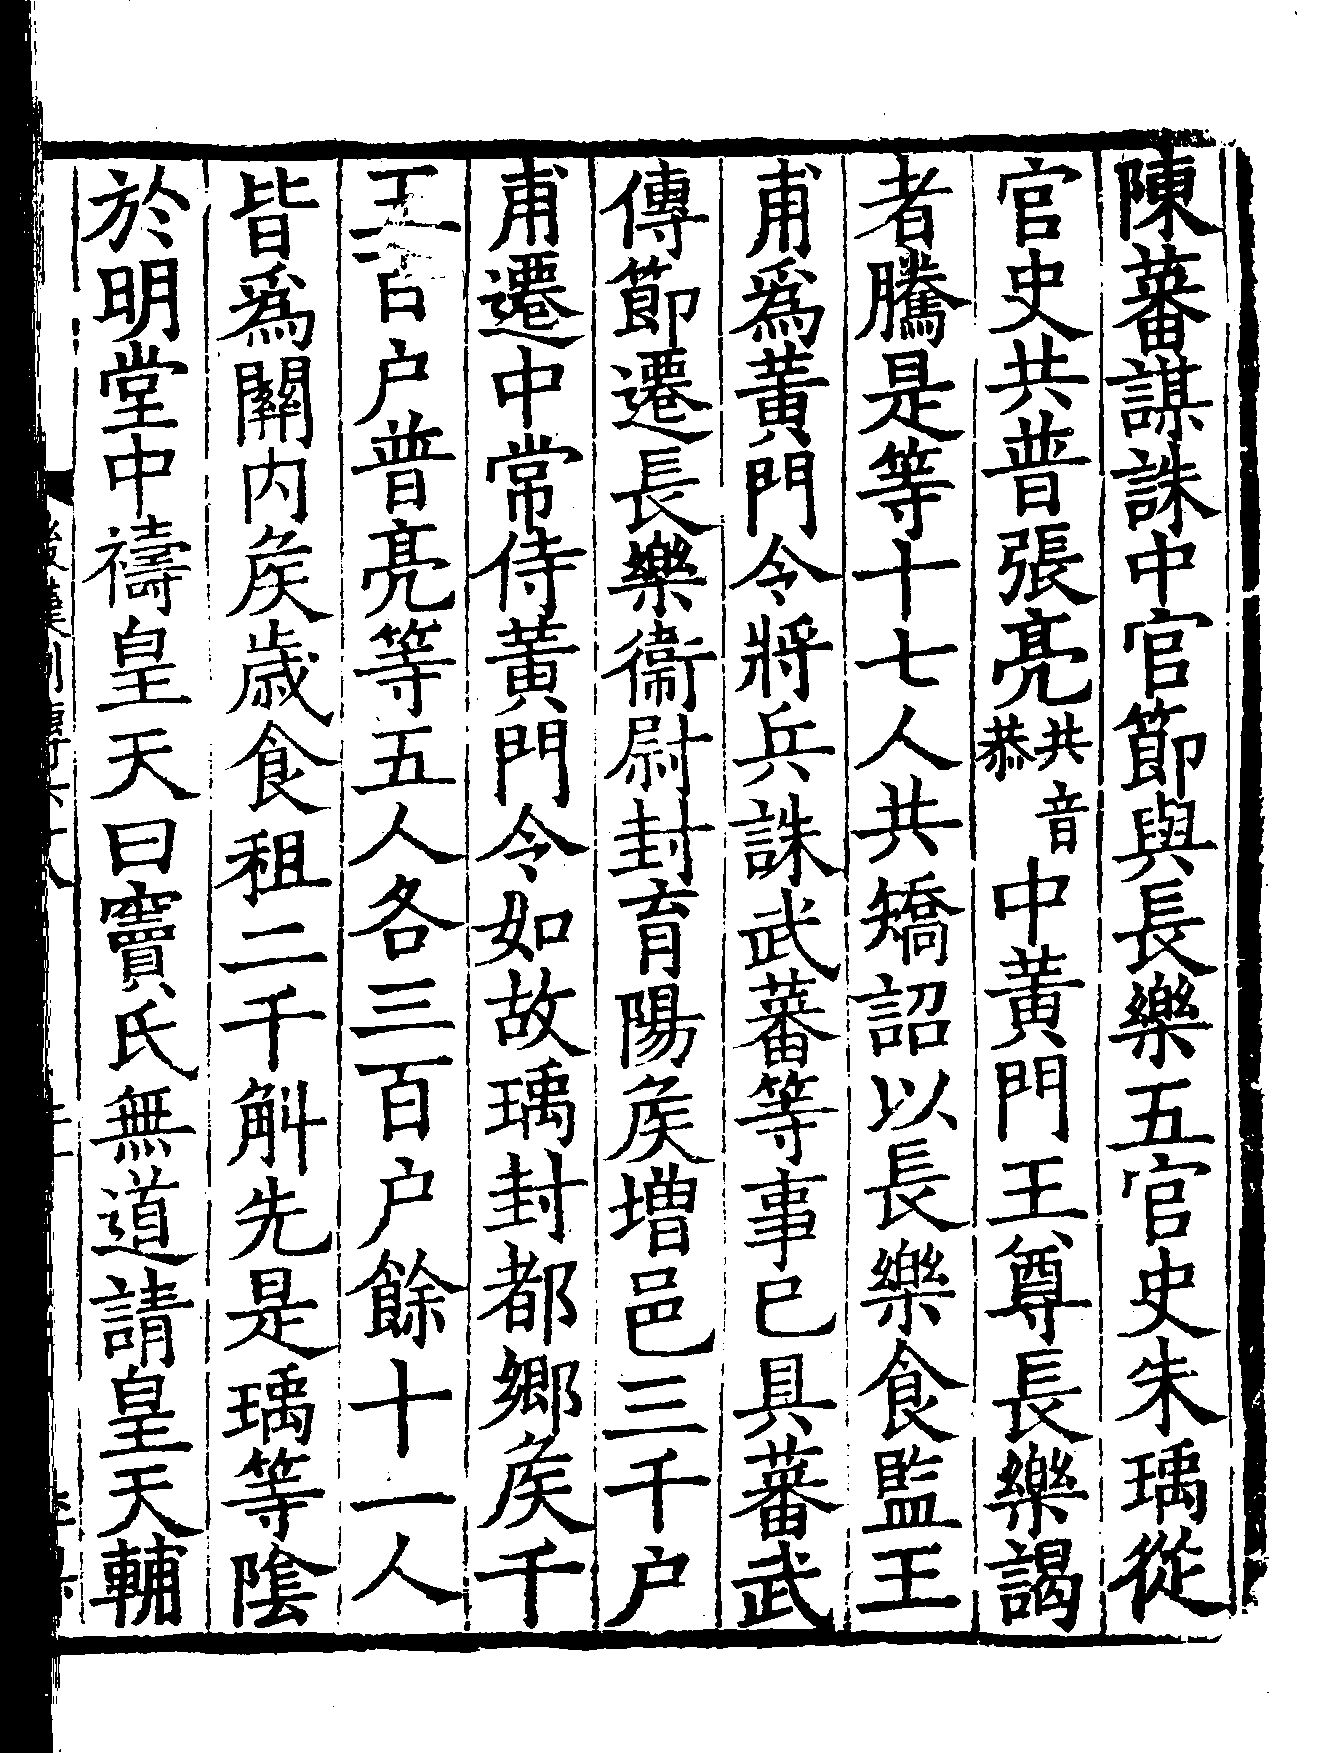 陳蕃謀誅中官節與長樂五官史朱瑀從
官史共普張亮共音恭中黃門王尊長樂謁
者騰是等十七人共矯詔以長樂食監王
甫爲黃門令將兵誅武蕃等事已具蕃武
傳節遷長樂衞尉封育陽矦增邑三千户
甫遷中常侍黃門令如故瑀封都鄉矦千
五百户普亮等五人各三百户餘十一人
皆爲關内矦歲食租二千斛先是瑀等隂
於明堂中禱皇天曰竇氏無道請皇天輔